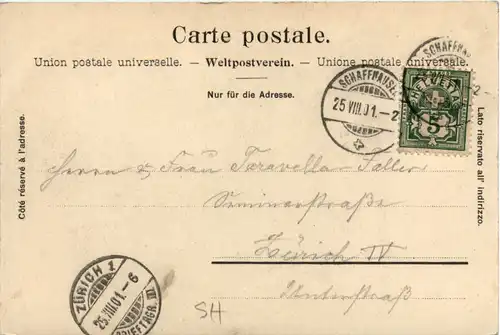 Carte postale.
Union postale universelle. — Weltpostverein. — Unione postale universale.
Nur für die Adresse.
Côté réservé à l'adresse.
Lato riservato all' indirizzo.
SCHAFFHAUSEN
25.VIII.01.–2
HELVETIA
5
Herrn & Frau Taravella-Faller
Seminarstraße
Zürich IV
Unterstraß
ZÜRICH 1
25.VIII.01.–6
BRIEFTRGR. III
SH